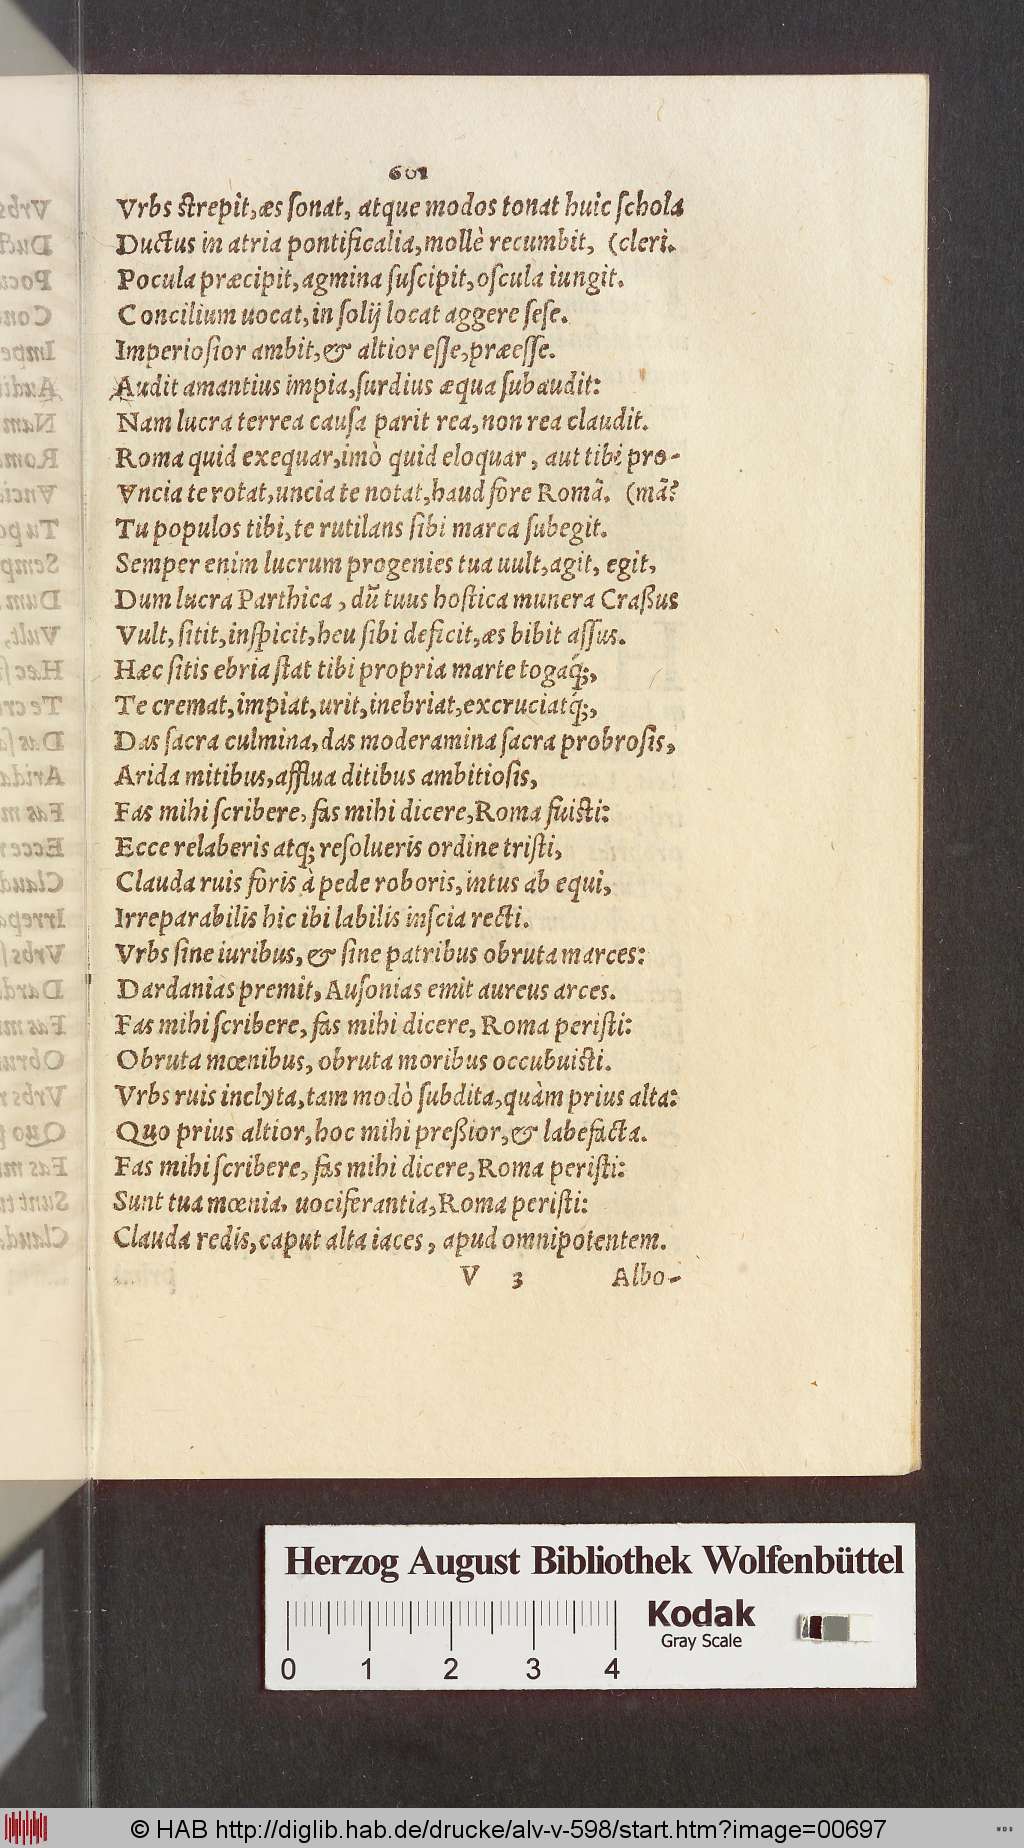 601
Vrbs strepit, æs sonat, atque modos tonat huic schola
Ductus in atria pontificalia, mollè recumbit, (cleri.
Pocula præcipit, agmina suscipit, oscula iungit.
Concilium uocat, in solij locat aggere sese.
Imperiosior ambit, & altior esse, præesse.
Audit amantius impia, surdius æqua subaudit:
Nam lucra terrea causa parit rea, non rea claudit.
Roma quid exequar, imò quid eloquar, aut tibi pro-
Vncia te rotat, uncia te notat, haud fore Romã. (mã?
Tu populos tibi, te rutilans sibi marca subegit.
Semper enim lucrum progenies tua uult, agit, egit,
Dum lucra Parthica, dũ tuus hostica munera Craßus
Vult, sitit, inspicit, heu sibi deficit, æs bibit assus.
Hæc sitis ebria stat tibi propria marte togaq́;,
Te cremat, impiat, urit, inebriat, excruciatq́;,
Das sacra culmina, das moderamina sacra probrosis,
Arida mitibus, afflua ditibus ambitiosis,
Fas mihi scribere, fas mihi dicere, Roma fuisti:
Ecce relaberis atq; resolueris ordine tristi,
Clauda ruis foris à pede roboris, intus ab equi,
Irreparabilis hic ibi labilis inscia recti.
Vrbs sine iuribus, & sine patribus obruta marces:
Dardanias premit, Ausonias emit aureus arces.
Fas mihi scribere, fas mihi dicere, Roma peristi:
Obruta mœnibus, obruta moribus occubuisti.
Vrbs ruis inclyta, tam modò subdita, quàm prius alta:
Quo prius altior, hoc mihi preßior, & labefacta.
Fas mihi scribere, fas mihi dicere, Roma peristi:
Sunt tua mœnia, uociferantia, Roma peristi:
Clauda redis, caput alta iaces, apud omnipotentem.
V 3 Albo-
Herzog August Bibliothek Wolfenbüttel
Kodak
Gray Scale
0 1 2 3 4
© HAB http://diglib.hab.de/drucke/alv-v-598/start.htm?image=00697